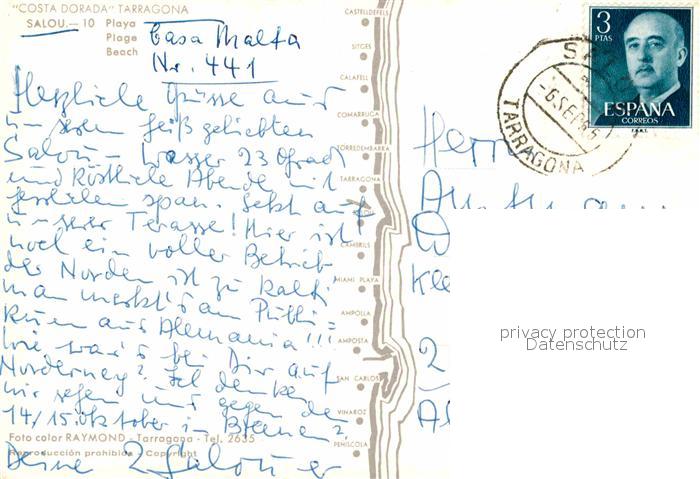 "COSTA DORADA" TARRAGONA
SALOU.— 10 Playa
Plage
Beach
Casa Malta
Nr. 441
Herzliche Grüsse aus
unserem heiß geliebten
Salou - Wasser 23 Grad
und köstliche Abende mit
herrlichem span. Sekt auf
unserer Terasse! Hier ist
noch ein voller Betrieb
der Norden ist zu kalt!
man merkt's am Publi=
kum aus Alemania!!!
Wie war's bei Dir auf
Norderney? Ich denke
wir sehen uns gegen den
14/15. Oktober in Bremen?
Deine 2 Salouer
Foto color RAYMOND - Tarragona - Tel. 2635
Reproducción prohibida - Copyright
CASTELLDEFELS
SITGES
CALAFELL
COMARRUGA
TORREDEMBARRA
TARRAGONA
CAMBRILS
MIAMI PLAYA
AMPOLLA
AMPOSTA
SAN CARLOS
VINAROZ
PEÑISCOLA
3
PTAS
ESPAÑA
CORREOS
F.N.M.T.
-6 SEP
TARRAGONA
Herrn
2
privacy protection
Datenschutz